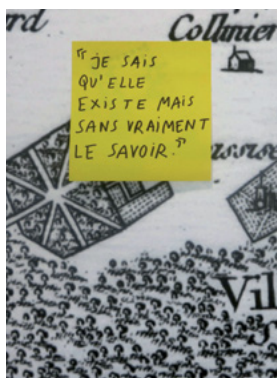 rd
Collinier
"JE SAIS
QU'ELLE
EXISTE MAIS
SANS VRAIMENT
LE SAVOIR."
assise
Vil